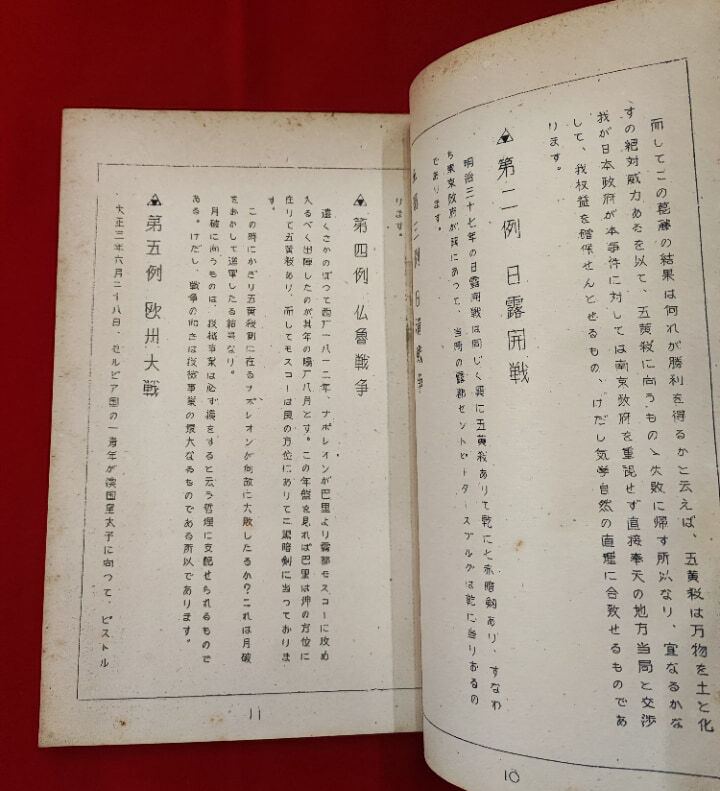 而してこの葛藤の結果は何れが勝利を得るかと云えば、五黄殺は万物を土と化
すの絶対威力あるを以て、五黄殺に向うもの、失敗に帰す所以なり、宜なるかな
我が日本政府が本事件に対しては南京政府を重視せず直接奉天の地方当局と交渉
して、我权益を確保せんとせるもの、けだし気学自然の真理に合致せるものであ
ります。
第二例 日露開戦
明治三十七年の日露開戦は同じく巽に五黄殺ありて乾にと亦暗剣あり、すなわ
ち東京政府が巽にあつて、当時の露都セントピータースブルグは乾に当りおるの
であります。
10
ります。
第四例 仏魯戦争
遠くさかのぼつて西戸一八一二年、ナポレオンが巴里より露都モスコーに攻め
入るべく出陣したのが其年の陽戸八月とす。この年盤を見れば巴里は坤の方位に
在りて五黄殺あり、而してモスコーは艮の方位にありて二黒暗剣に当つておりま
す。
この時にかぎり五黄殺側に在るナポレオンが何故に大敗したるか?これは月破
をおかして進軍したる結果なり。
月破に向うものは、役徴事業は必ず損をすると云う哲理に支配せられるもので
ある。けだし、戦争の如きは役徴事業の最大なるものである所以であります。
第五例 欧州大戦
大正三年六月二十八日、セルビア国の一青年が澳国皇太子に向つて、ピストル
11